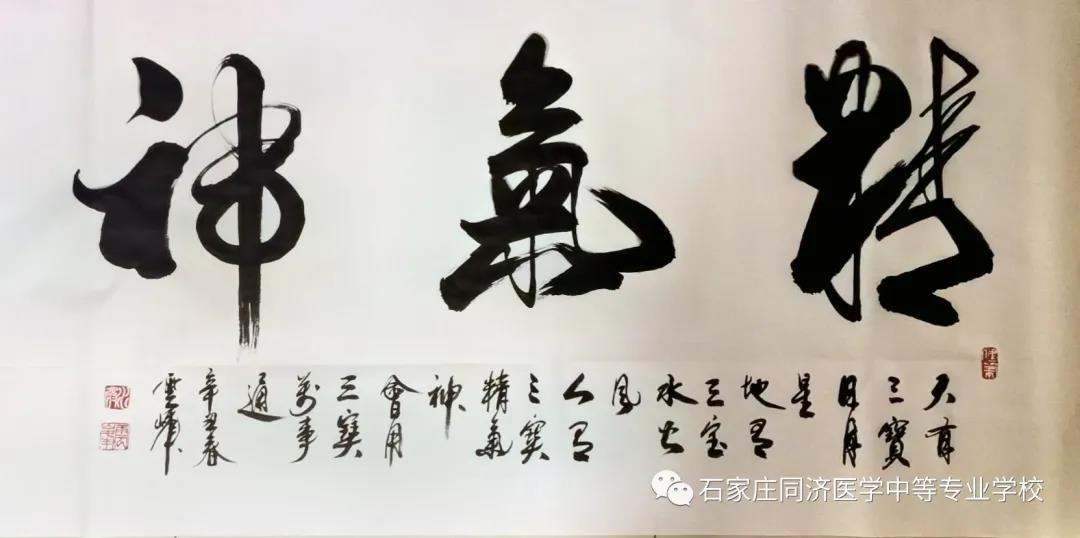 精氣神
天有
三寶
日月
星
地有
三宝
水火
風
人有
三寶
精氣
神
會用
三寶
萬事
通
辛丑春
雲峰
石家庄同济医学中等专业学校